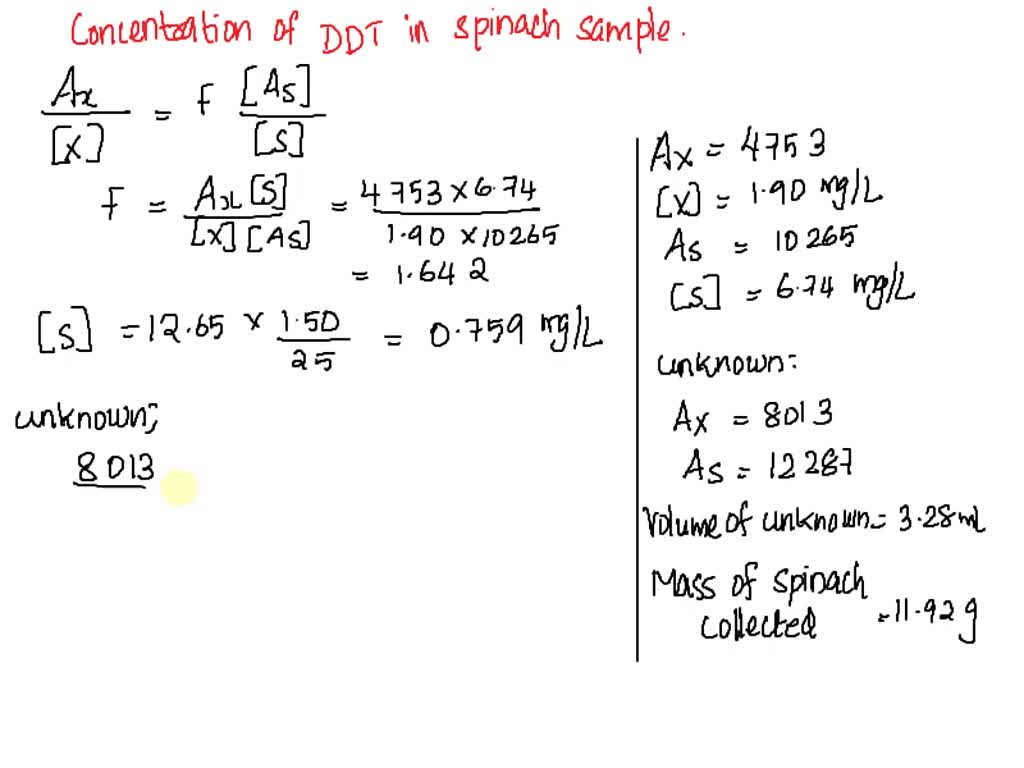 Concentration of DDT in spinach sample.
Ax / [X] = F [As] / [S]
F = Ax[S] / [X][As] = 4753 x 6.74 / 1.90 x 10265
= 1.642
[S] = 12.65 x 1.50 / 25 = 0.759 mg/L
unknown;
8013
Ax = 4753
[X] = 1.90 mg/L
As = 10265
[S] = 6.74 mg/L
unknown:
Ax = 8013
As = 12287
Volume of unknown = 3.28mL
Mass of spinach
collected = 11.92g